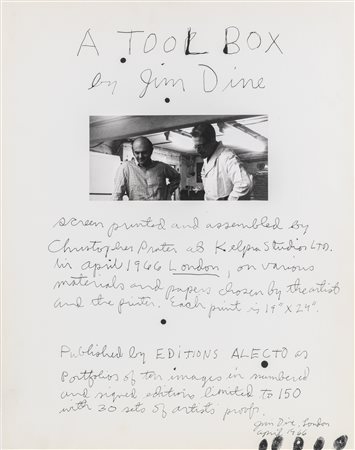 A TOOL BOX
by Jim Dine
screen printed and assembled by
Christopher Prater at Kelpra Studios LTD.
in april 1966 London, on various
materials and papers chosen by the artist
and the printer. Each print is 19" X 24".
Published by EDITIONS ALECTO as
Portfolios of ten images in numbered
and signed editions limited to 150
with 30 sets of artists proofs.
Jim Dine, London
april 1966